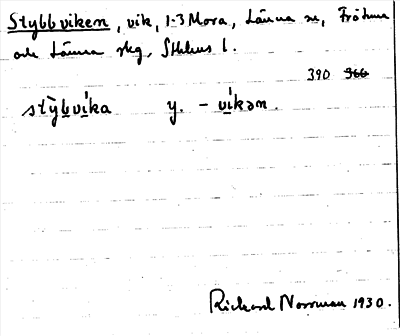 Stybbviken, vik, 1-3 Mora, Länna sn, Frötuna
och Länna skg, Sthlms l.
390 366
stỳb̲ví̲ka y. - ví̲kən.
Rickard Norrman 1930.